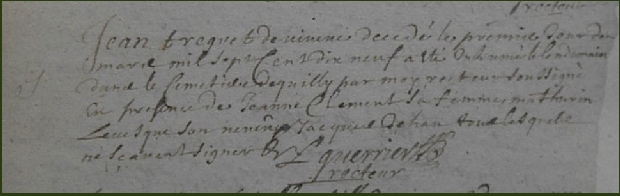 Recteur
Jean trequet de vivené decedé le premier Jour de
mard mil sept Cent dix neuf a eté Inhumé le lendemain
dans le Cimetiere de quilly par moy recteur soussigné
En presence de Jeanne Clement sa femme mathurin
Levesque son neveu Jacques dehan tous lesquels
ne sçavent signer L guerrier
recteur